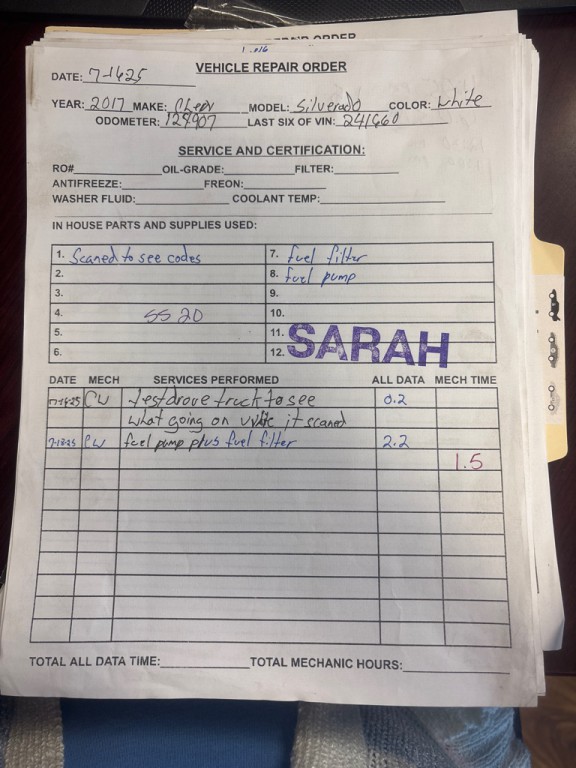 VEHICLE REPAIR ORDER
DATE: 7-1625
YEAR: 2017 MAKE: Chevy MODEL: Silverado COLOR: White
ODOMETER: LAST SIX OF VIN: 241660
SERVICE AND CERTIFICATION:
RO# OIL-GRADE: FILTER:
ANTIFREEZE: FREON:
WASHER FLUID: COOLANT TEMP:
IN HOUSE PARTS AND SUPPLIES USED:
1. Scaned to see codes 7. fuel filter
2. 8. fuel pump
3. 9.
4. SS 20 10.
5. 11. SARAH
6. 12.
DATE MECH SERVICES PERFORMED ALL DATA MECH TIME
7-16-25 CW testdrove truck to see 0.2
what going on it scaned
7-18-25 CW fuel pump plus fuel filter 2.2
1.5
TOTAL ALL DATA TIME: TOTAL MECHANIC HOURS: